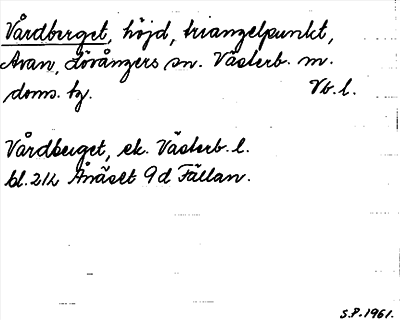 Vårdberget, höjd, triangelpunkt,
Avan, Lövångers sn. Västerb. m.
doms. tg. Vb. l.
Vårdberget, ek. Västerb. l.
bl. 212 Ånäset 9d Fällan.
S.P. 1961.